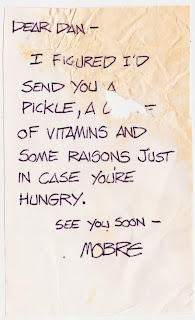 DEAR DAN –
I FIGURED I'D
SEND YOU A
PICKLE, A
OF VITAMINS AND
SOME RAISONS JUST
IN CASE YOU'RE
HUNGRY.
SEE YOU SOON –
MOBRE